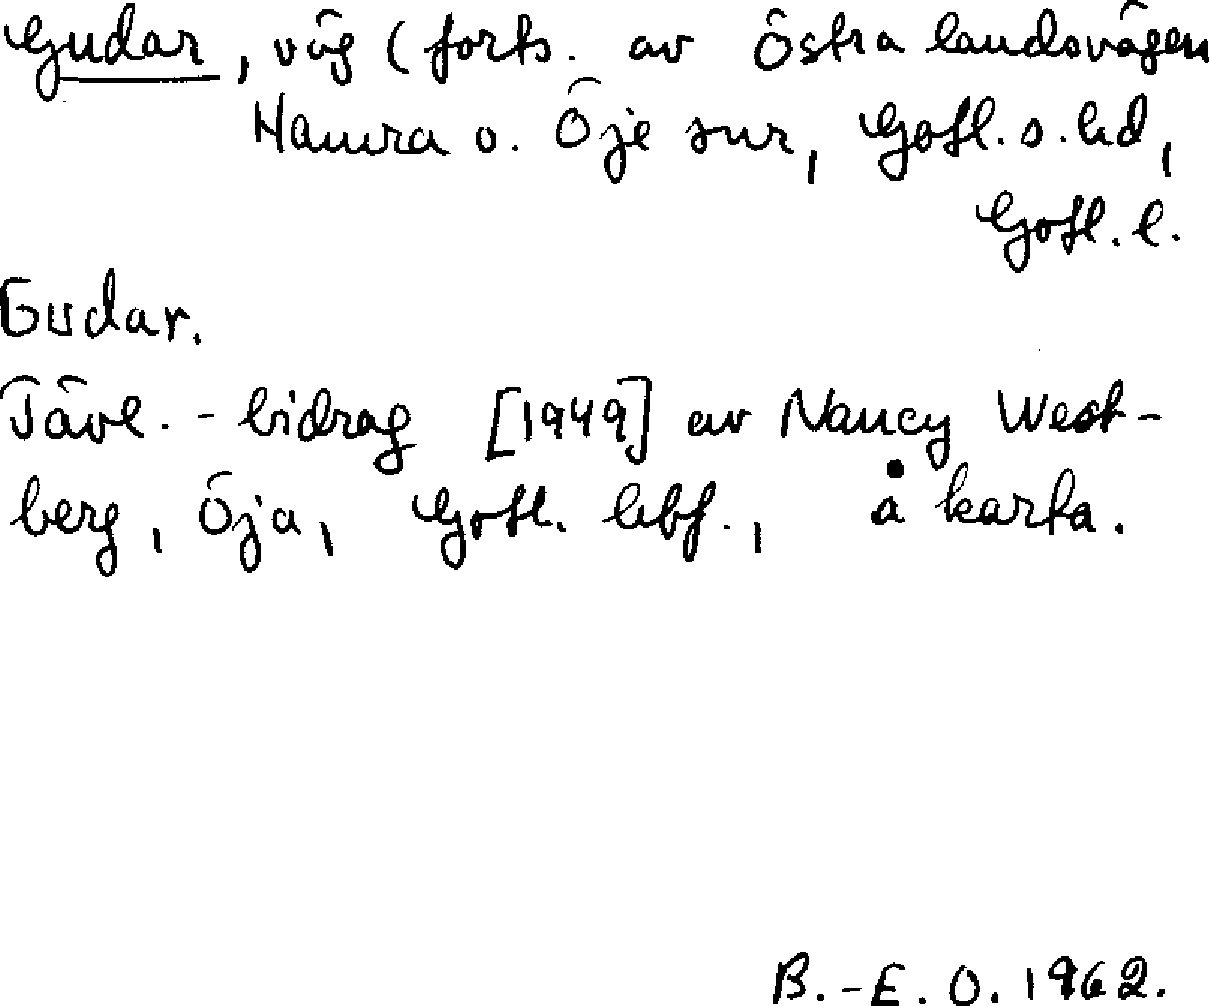 Gudar, väg (forts. av Östra landsvägen
Hamra o. Öje snr, Gotl. s. hd,
Gotl. l.
Gudar.
Tävl.-bidrag [1949] av Nancy West-
berg, Öja, Gotl. hbf., å karta.
B.-E. O. 1962.